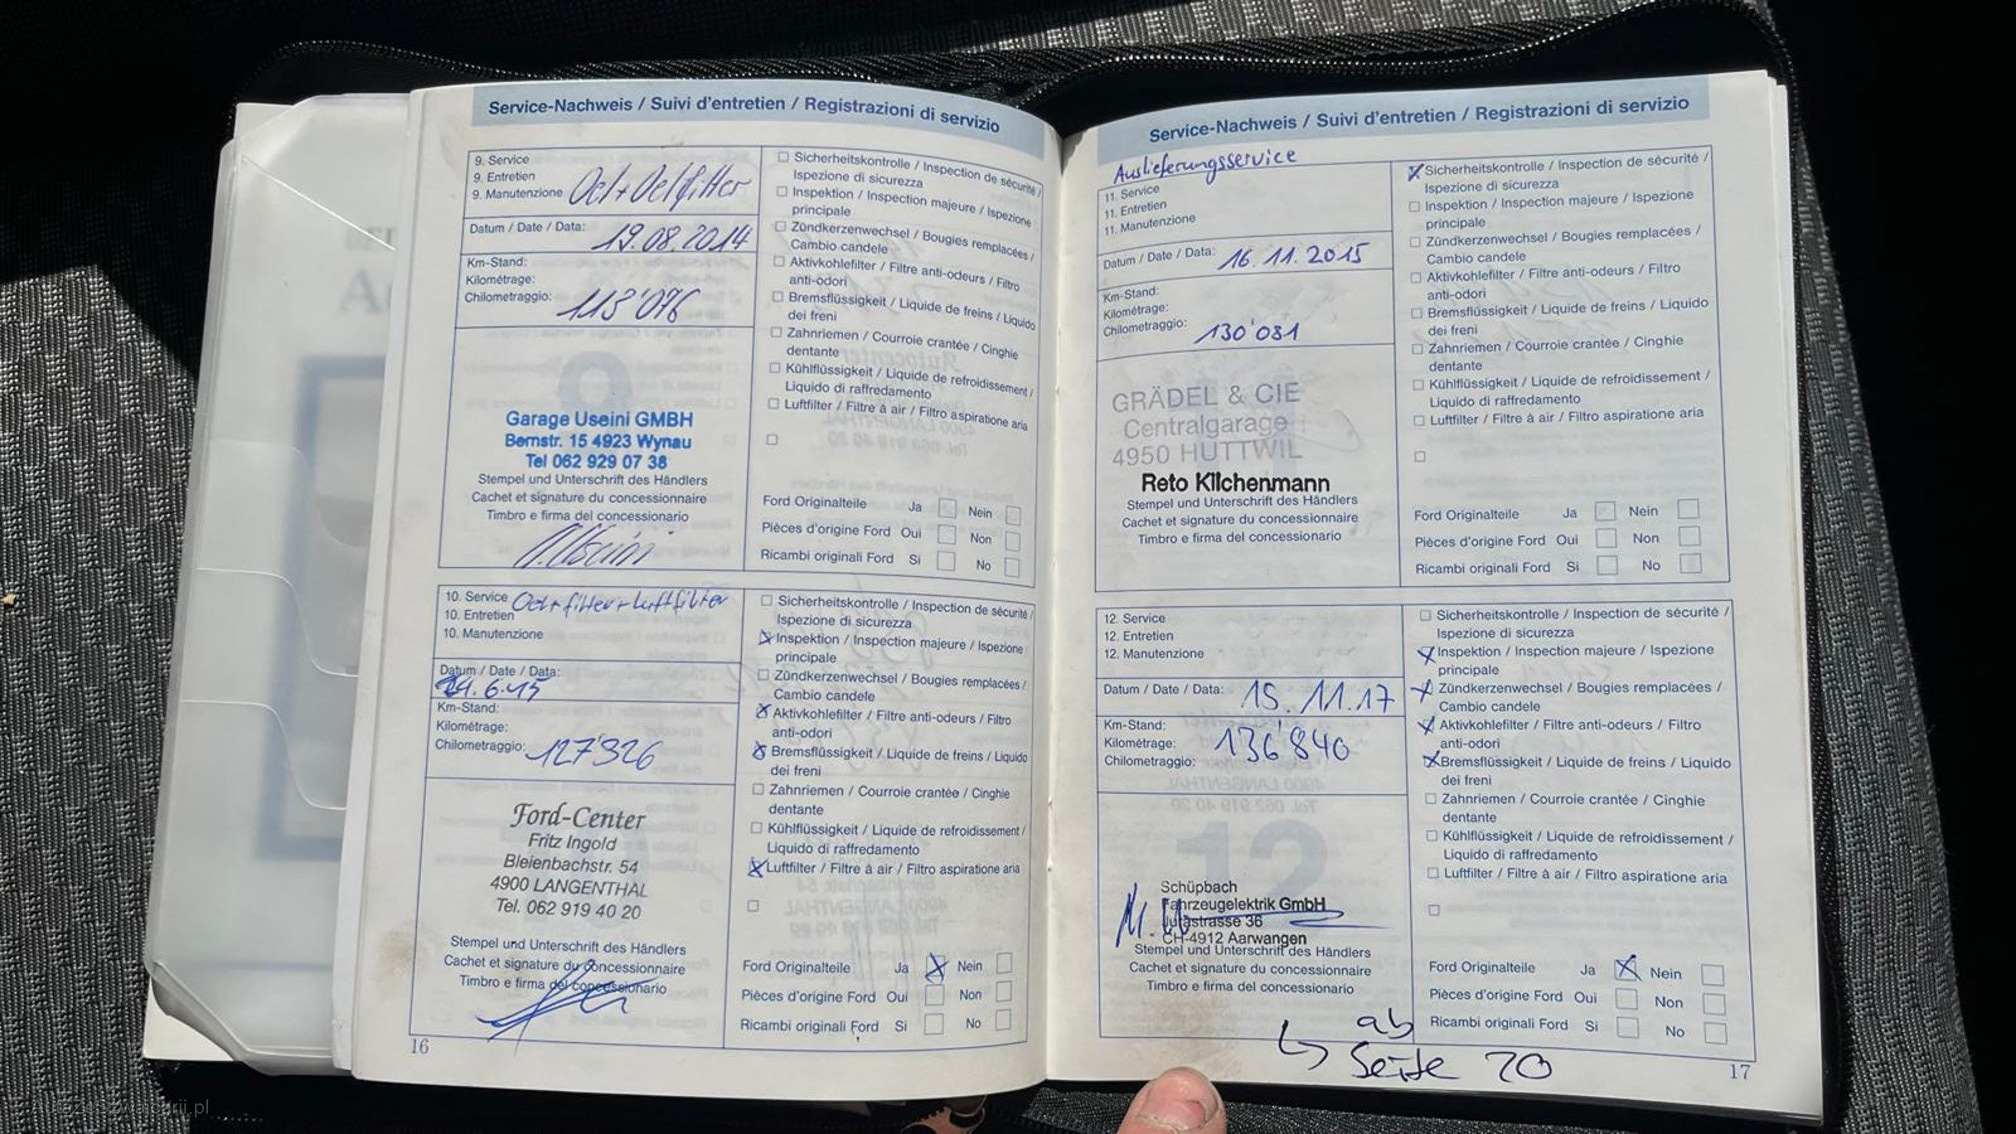 Service-Nachweis / Suivi d'entretien / Registrazioni di servizio
9. Service
9. Entretien
9. Manutenzione
Oel+Oelfilter
Datum / Date / Data:
19.08.2014
Km-Stand:
Kilométrage:
Chilometraggio:
113'076
Garage Useini GMBH
Bernstr. 15 4923 Wynau
Tel 062 929 07 38
Stempel und Unterschrift des Händlers
Cachet et signature du concessionnaire
Timbro e firma del concessionario
Sicherheitskontrolle / Inspection de sécurité /
Ispezione di sicurezza
Inspektion / Inspection majeure / Ispezione
principale
Zündkerzenwechsel / Bougies remplacées /
Cambio candele
Aktivkohlefilter / Filtre anti-odeurs / Filtro
anti-odori
Bremsflüssigkeit / Liquide de freins / Liquido
dei freni
Zahnriemen / Courroie crantée / Cinghie
dentante
Kühlflüssigkeit / Liquide de refroidissement /
Liquido di raffredamento
Luftfilter / Filtre à air / Filtro aspiratione aria
Ford Originalteile Ja Nein
Pièces d'origine Ford Oui Non
Ricambi originali Ford Si No
10. Service
10. Entretien
10. Manutenzione
Oel+filter+Luftfilter
Datum / Date / Data:
24.6.15
Km-Stand:
Kilométrage:
Chilometraggio:
127'326
Ford-Center
Fritz Ingold
Bleienbachstr. 54
4900 LANGENTHAL
Tel. 062 919 40 20
Stempel und Unterschrift des Händlers
Cachet et signature du concessionnaire
Timbro e firma del concessionario
Sicherheitskontrolle / Inspection de sécurité /
Ispezione di sicurezza
Inspektion / Inspection majeure / Ispezione
principale
Zündkerzenwechsel / Bougies remplacées /
Cambio candele
Aktivkohlefilter / Filtre anti-odeurs / Filtro
anti-odori
Bremsflüssigkeit / Liquide de freins / Liquido
dei freni
Zahnriemen / Courroie crantée / Cinghie
dentante
Kühlflüssigkeit / Liquide de refroidissement /
Liquido di raffredamento
Luftfilter / Filtre à air / Filtro aspiratione aria
Ford Originalteile Ja Nein
Pièces d'origine Ford Oui Non
Ricambi originali Ford Si No
16
Service-Nachweis / Suivi d'entretien / Registrazioni di servizio
Auslieferungsservice
11. Service
11. Entretien
11. Manutenzione
Datum / Date / Data:
16.11.2015
Km-Stand:
Kilométrage:
Chilometraggio:
130'081
GRÄDEL & CIE
Centralgarage
4950 HUTTWIL
Reto Kilchenmann
Stempel und Unterschrift des Händlers
Cachet et signature du concessionnaire
Timbro e firma del concessionario
Sicherheitskontrolle / Inspection de sécurité /
Ispezione di sicurezza
Inspektion / Inspection majeure / Ispezione
principale
Zündkerzenwechsel / Bougies remplacées /
Cambio candele
Aktivkohlefilter / Filtre anti-odeurs / Filtro
anti-odori
Bremsflüssigkeit / Liquide de freins / Liquido
dei freni
Zahnriemen / Courroie crantée / Cinghie
dentante
Kühlflüssigkeit / Liquide de refroidissement /
Liquido di raffredamento
Luftfilter / Filtre à air / Filtro aspiratione aria
Ford Originalteile Ja Nein
Pièces d'origine Ford Oui Non
Ricambi originali Ford Si No
12. Service
12. Entretien
12. Manutenzione
Datum / Date / Data:
15.11.17
Km-Stand:
Kilométrage:
Chilometraggio:
136'840
12
Schüpbach
Fahrzeugelektrik GmbH
Jurastrasse 36
CH-4912 Aarwangen
Stempel und Unterschrift des Händlers
Cachet et signature du concessionnaire
Timbro e firma del concessionario
Sicherheitskontrolle / Inspection de sécurité /
Ispezione di sicurezza
Inspektion / Inspection majeure / Ispezione
principale
Zündkerzenwechsel / Bougies remplacées /
Cambio candele
Aktivkohlefilter / Filtre anti-odeurs / Filtro
anti-odori
Bremsflüssigkeit / Liquide de freins / Liquido
dei freni
Zahnriemen / Courroie crantée / Cinghie
dentante
Kühlflüssigkeit / Liquide de refroidissement /
Liquido di raffredamento
Luftfilter / Filtre à air / Filtro aspiratione aria
Ford Originalteile Ja Nein
Pièces d'origine Ford Oui Non
Ricambi originali Ford Si No
ab
Seite 20
17